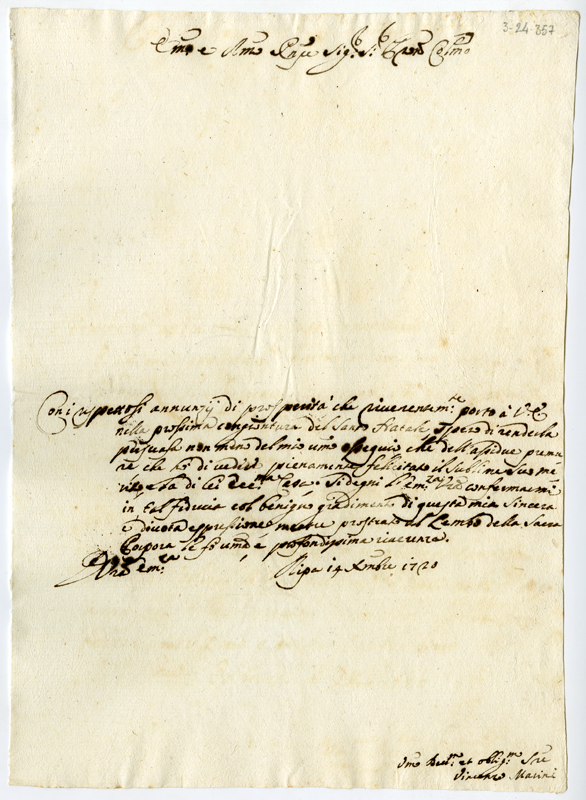 3-24-357
Em.o e Rmo Pnpe Sig.r Sig.r Pron Colmo
Con i rispettosi annunzij di prosperità che riverentem.te porto à V.E.
nella prossima congiuntura del Santo Natale spero di renderla
persuasa non meno del mio umo ossequio che dell'assidue premu
re che hò di vedere pienamente felicitato il sublime suo me
rito, e la di lei Testa. Si degni l'Em.za V.ra confermarmi
in tal fiducia col benigno gradimento di questa mia sincera
e divota espressione, mentre prostrato al Lembo della Sacra
Porpora le fò umã, e profondissima riverenza.
Vra Em.za Ripa 14 Xmbre 1720
Umo Devmo et obligmo Sre
Vincenzo Marini